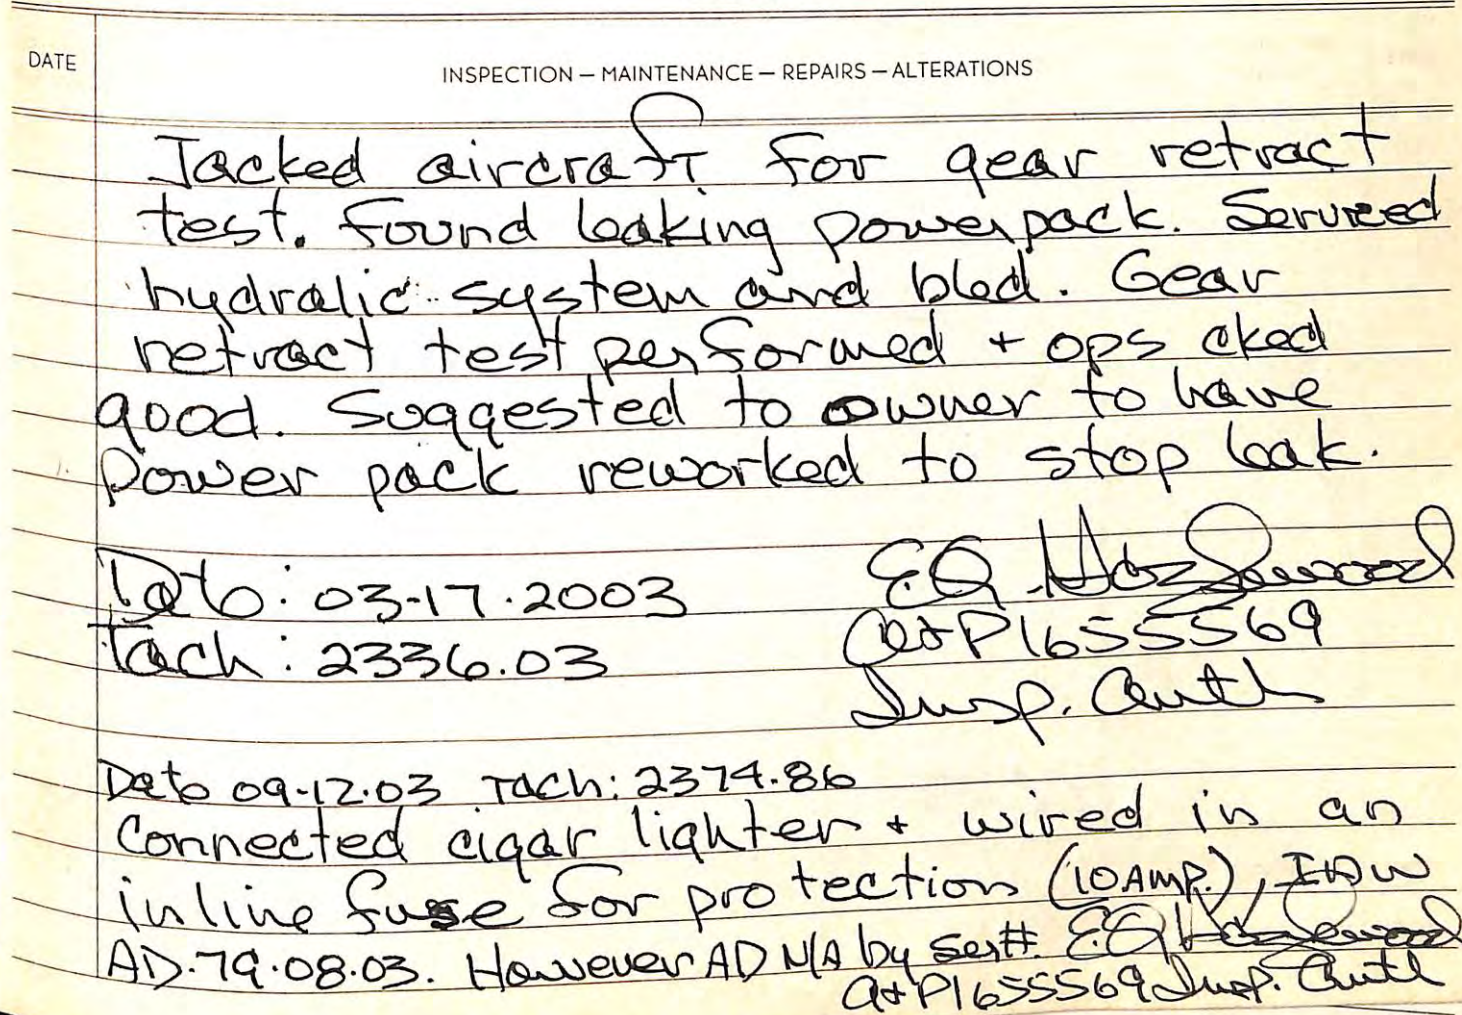 DATE
INSPECTION — MAINTENANCE — REPAIRS — ALTERATIONS
Jacked aircraft for gear retract
test. Found leaking powerpack. Serviced
hydralic system and bled. Gear
retract test performed + ops cked
good. Suggested to owner to have
Power pack reworked to stop leak.
Date: 03-17-2003
E.G. Hazelwood
Tach: 2336.03
A+P1655569
Insp. Auth
Date 09-12-03 Tach: 2374.86
Connected cigar lighter + wired in an
inline fuse for protection (10 AMP.), IAW
AD.79.08.03. However AD N/A by ser#. E.G. Hazelwood
A+P1655569 Insp. Auth